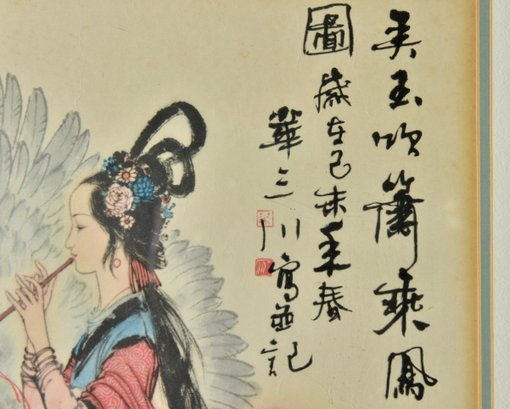 弄玉吹簫乘鳳
圖歲在己未春
華三川寫並記